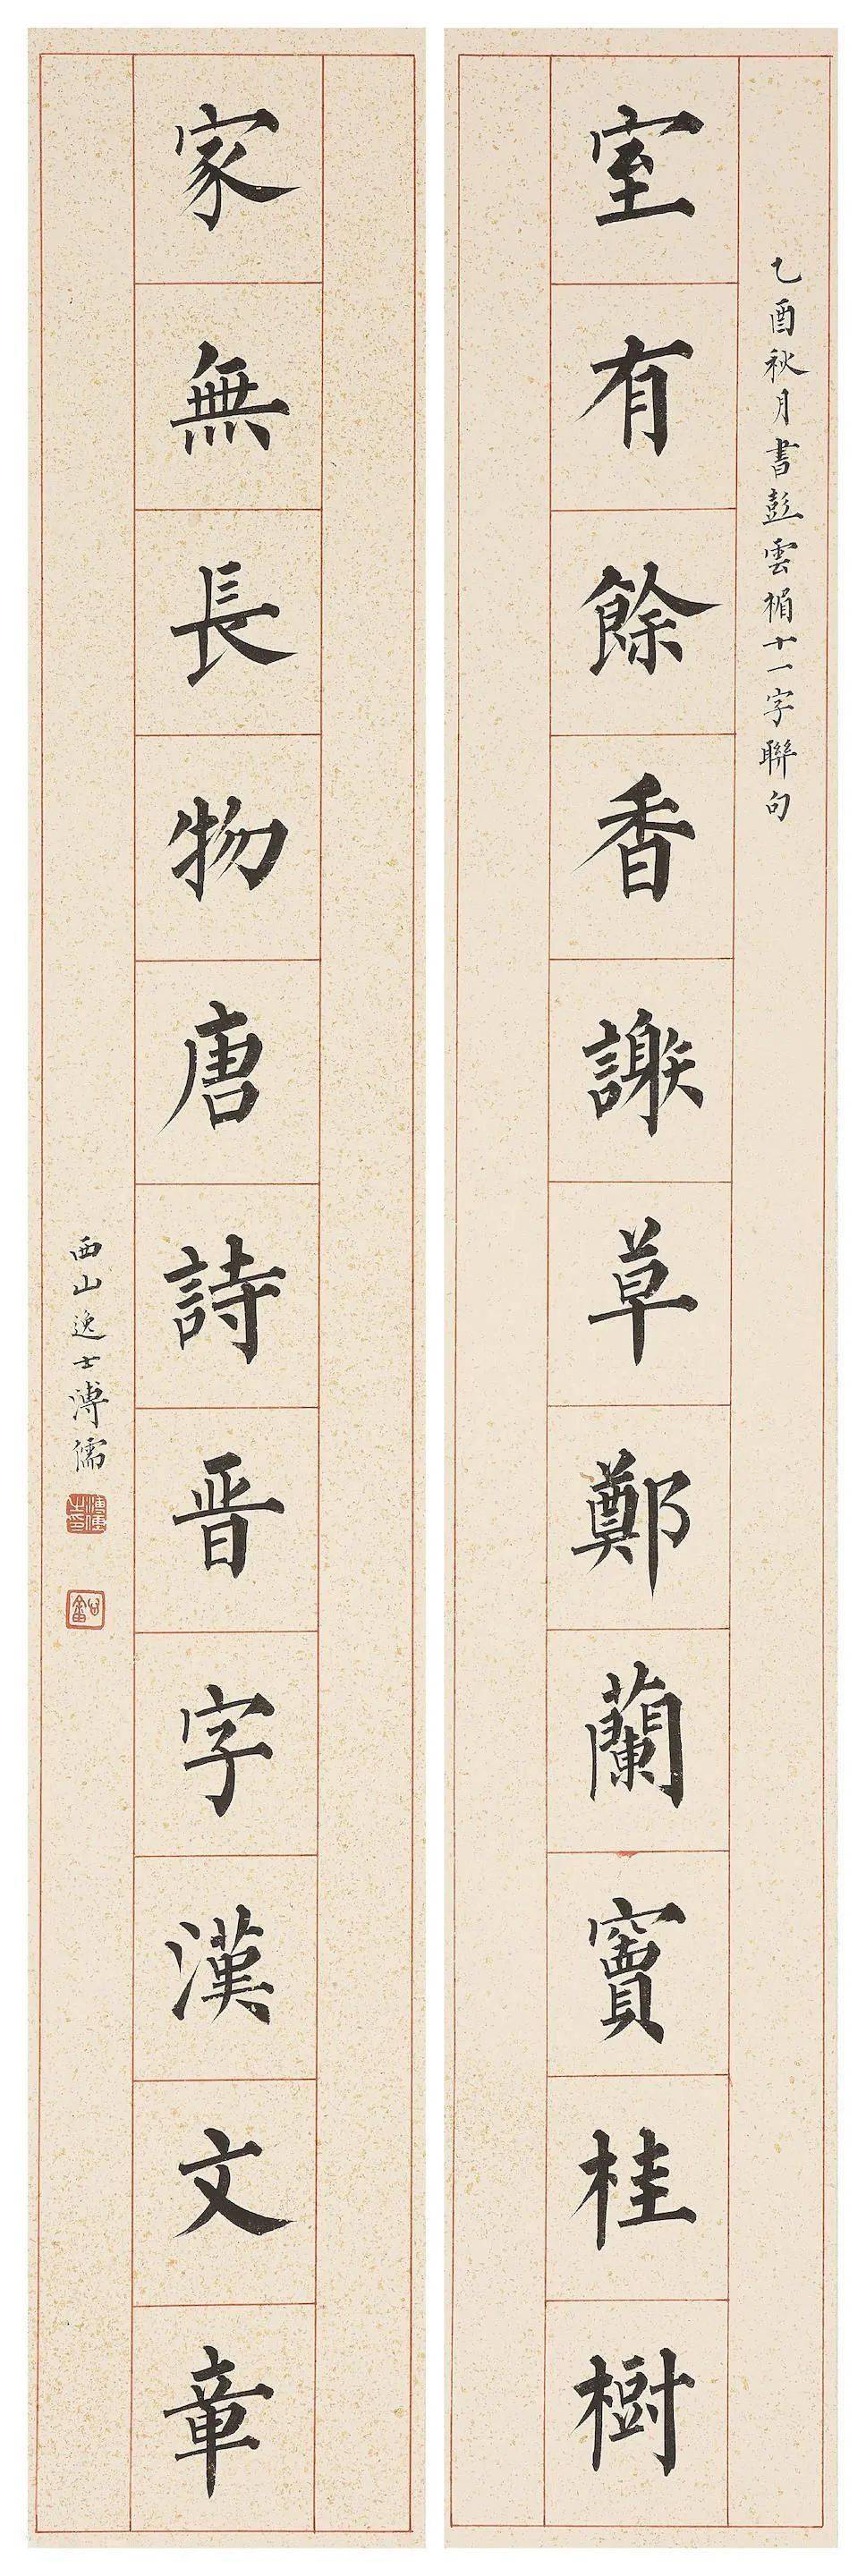 乙酉秋月書彭雲楣十一字聯句
室有餘香謝草鄭蘭竇桂樹
家無長物唐詩晋字漢文章
西山逸士溥儒
溥儒之印